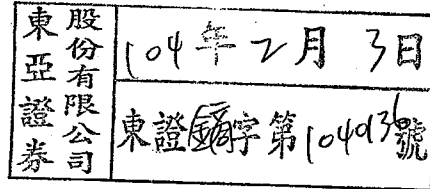 東亞證券
股份有限公司
104年2月3日
東證鏑字第1040136號